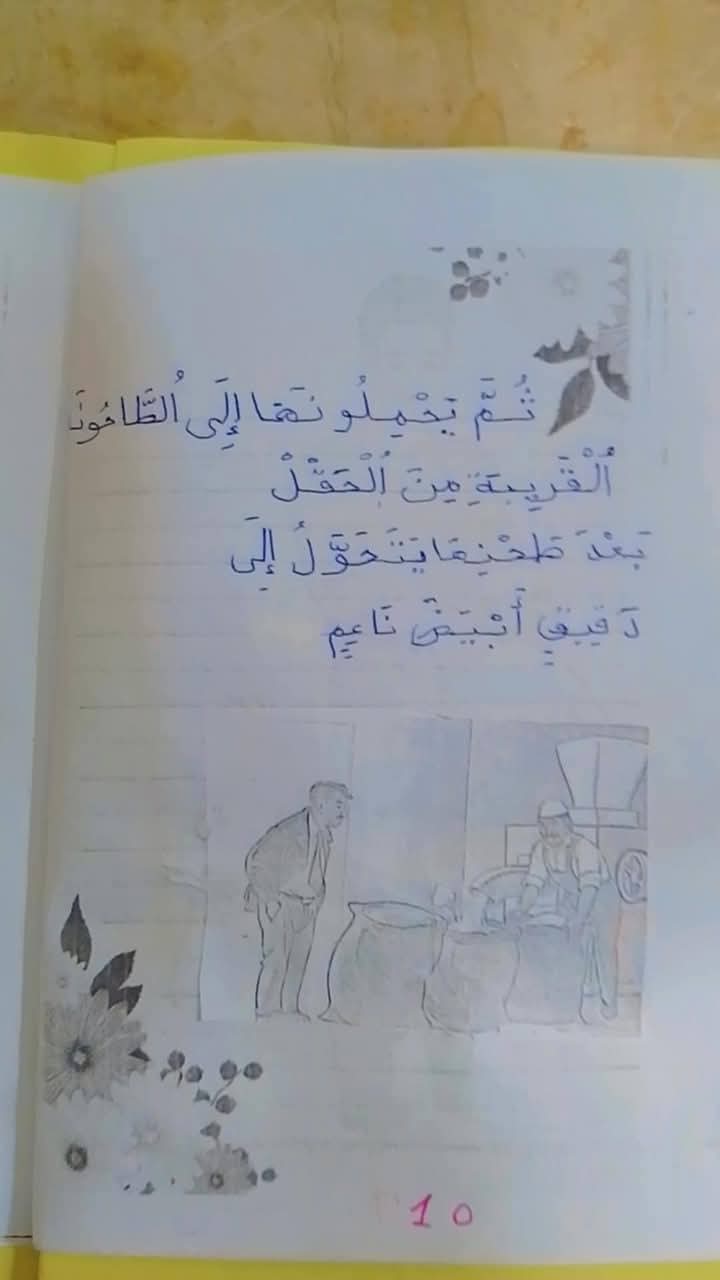 ثُمَّ يَحْمِلُونَهَا إِلَى الطَّاحُونَ
الْقَرِيبَةِ مِنَ الْحَقْلْ
بَعْدَ طَحْنِهَا يَتَحَوَّلُ إِلَى
دَقِيقٍ أَبْيَضَ نَاعِمٍ
10